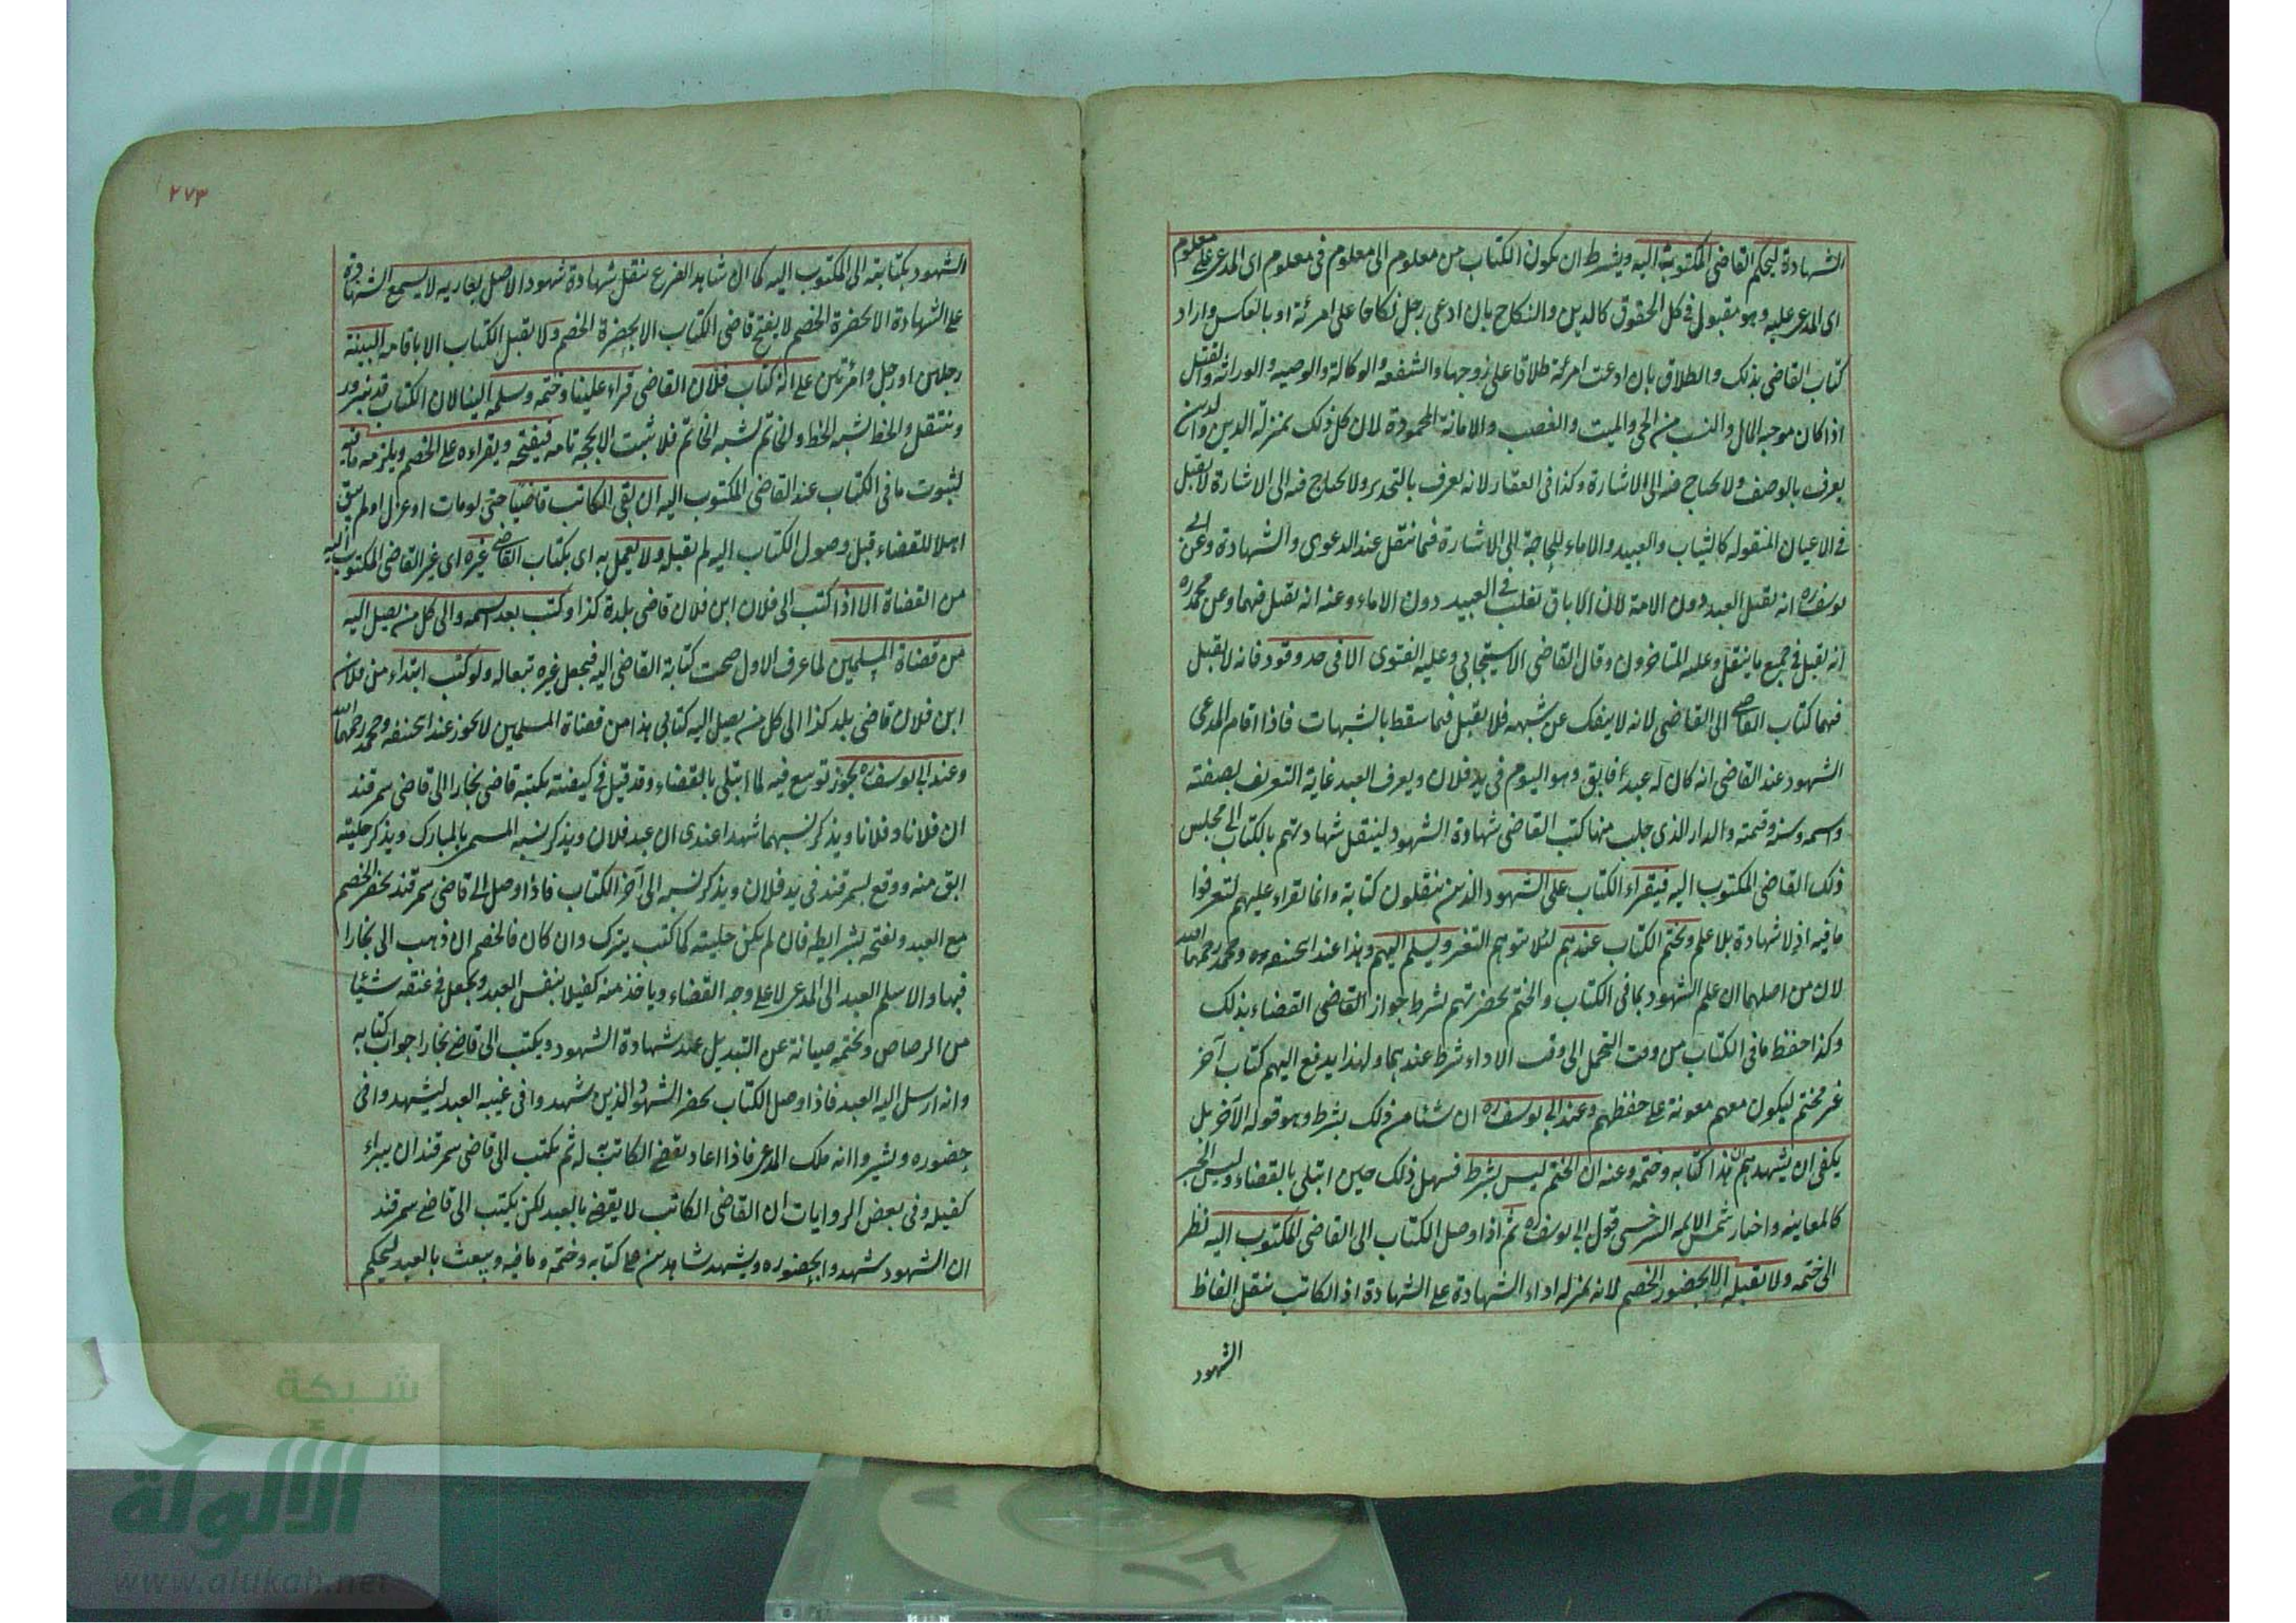 الشهادة ليحكم القاضى المكتوب اليه ويشترط ان يكون الكتاب من معلوم الى معلوم فى معلوم اى المدعى على معلوم
اى المدعى عليه وهو مقبول فى كل الحقوق كالدين والنكاح بان ادعى رجل نكاحا على امرئة او بالعكس واراد
كتاب القاضى بذلك والطلاق بان ادعت امرئة طلاقا على زوجها والشفعه والوكالة والوصيه والوراثه والقتل
اذا كان موجبه المال والنسب من الحى والميت والغصب والامانة المجحودة لان كل ذلك بمنزلة الدين والدين
يعرف بالوصف ولا يحتاج فيه الى الاشارة وكذا فى العقار لانه يعرف بالتحديد ولا يحتاج فيه الى الاشارة لا يقبل
فى الاعيان المنقوله كالثياب والعبيد والاماء للحاجة الى الاشارة فيما ينتقل عند الدعوى والشهادة وعن ابى
يوسف ره انه يقبل العبد دون الامة لان الاباق تغلب فى العبيد دون الاماء وعنه انه يقبل فيهما وعن محمد ره
انه يقبل فى جميع ما ينتقل وعليه المتاخرون وقال القاضى الاسبيجابى وعليه الفتوى الا فى حد وقود فانه لا يقبل
فيهما كتاب القاضى الى القاضى لانه لا ينفك عن شبهه فلا يقبل فيما سقط بالشبهات فاذا اقام المدعى
الشهود عند القاضى انه كان له عبد أفابق وهو اليوم فى يد فلان ويعرف العبد غاية التعريف بصفته
واسمه وسنه وقيمته والدار الذى جلب منها كتب القاضى شهادة الشهود لينتقل شهادتهم بالكتاب الى مجلس
ذلك القاضى المكتوب اليه فيقراء الكتاب على الشهود الذين ينقلون كتابة وانما يقراء عليهم لتعرفوا
ما فيه اذ لا شهادة بلا علم ويختم الكتاب عندهم لئلا يتوهم التغير ويسلم اليهم وهذا عند ابحنيفه ره ومحمد رحمهما الله
لان من اصلهما ان علم الشهود بما فى الكتاب والختم بحضرتهم شرط جواز القاضى القضاء بذلك
وكذا حفظ ما فى الكتاب من وقت التحمل الى وقت الاداء شرط عندهما ولهذا يدفع اليهم كتاب آخر
غير مختم ليكون معهم معونة على حفظهم وعند ابى يوسف ره ان شئا من ذلك بشرط وهو قوله الآخر بل
يكفى ان يشهدهم ان هذا كتابه وختمه وعنه ان الختم ليس بشرط فسهل ذلك حين ابتلى بالقضاء وليس الخبر
كالمعاينه واختار شمس الايمه السرخسى قول ابى يوسف ره ثم اذا وصل الكتاب الى القاضى المكتوب اليه نظر
الى ختمه ولا يقبله الا بحضور الخصم لانه بمنزله اداء الشهادة على الشهادة اذ الكاتب ينقل الفاظ
الشهود
٢٧٣
الشهود بكتابته الى المكتوب اليه كما ان شاهد الفرع ينقل شهادة شهود الاصل بعباريه لا يسمع الشهادة
على الشهادة الا بحضرة الخصم لا يفتح قاضى الكتاب الا بحضرة الخصم ولا يقبل الكتاب الا باقامه البينة
رجلين او رجل وامرئتين على انه كتاب فلان القاضى قراء علينا وختمه وسلمه الينا لان الكتاب قد يزور
وينتقل والخط يشبه الخط والخاتم يشبه الخاتم فلا يثبت الا بحجه تامه فيفتحه ويقراءه على الخصم ويلزمه ما فيه
لثبوت ما فى الكتاب عند القاضى المكتوب اليه ان بقى الكاتب قاضيا حتى لو مات او عزل او لم يبق
اهلا للقضاء قبل وصول الكتاب اليه لم يقبله ولا يعمل به اى بكتاب القاضى غيره اى غير القاضى المكتوب اليه
من القضاة الا اذا كتب الى فلان ابن فلان قاضى بلدة كذا وكتب بعد اسمه والى كل من يصل اليه
من قضاة المسلمين لما عرف الاول صحت كتابة القاضى اليه فيجعل غيره تبعا له ولو كتب ابتداء من فلان
ابن فلان قاضى بلد كذا الى كل من يصل اليه كتابى هذا من قضاة المسلمين لا يجوز عند ابحنيفه ومحمد رحمهما الله
وعند ابى يوسف ره يجوز توسع فيه لما ابتلى بالقضاء وقد قيل فى كيفيته يكتبه قاضى بخارا الى قاضى سمرقند
ان فلانا وفلانا ويذكر نسبهما شهدا عندى ان عبد فلان ويذكر نسبه المسمى بالمبارك ويذكر حليته
ابق منه ووقع بسمرقند فى يد فلان ويذكر نسبه الى آخر الكتاب فاذا وصل الى قاضى سمرقند يحضر الخصم
مع العبد ويفتحه بشرايطه فان لم يكن حليته كما كتب يترك وان كان فالخصم ان ذهب الى بخارا
فبها والا سلم العبد الى المدعى لا على وجه القضاء وياخذ منه كفيلا بنفس العبد ويجعل فى عنقه شيئا
من الرصاص ويختمه صيانة عن التبديل عند شهادة الشهود ويكتب الى قاضى بخارا جواب كتابه
وانه ارسل اليه العبد فاذا وصل الكتاب يحضر الشهود الذين شهدوا فى غيبه العبد ليشهدوا فى
حضوره ويشيروا انه ملك المدعى فاذا اعاد يقضى الكاتب به له ثم يكتب الى قاضى سمرقند ان يبراء
كفيله وفى بعض الروايات ان القاضى الكاتب لا يقضى بالعبد لكن يكتب الى قاضى سمرقند
ان الشهود شهدوا بحضوره ويشهد شاهدين على كتابه وختمه وما فيه ويبعث بالعبد ليحكم
شبكة
الألوكة
www.alukah.net